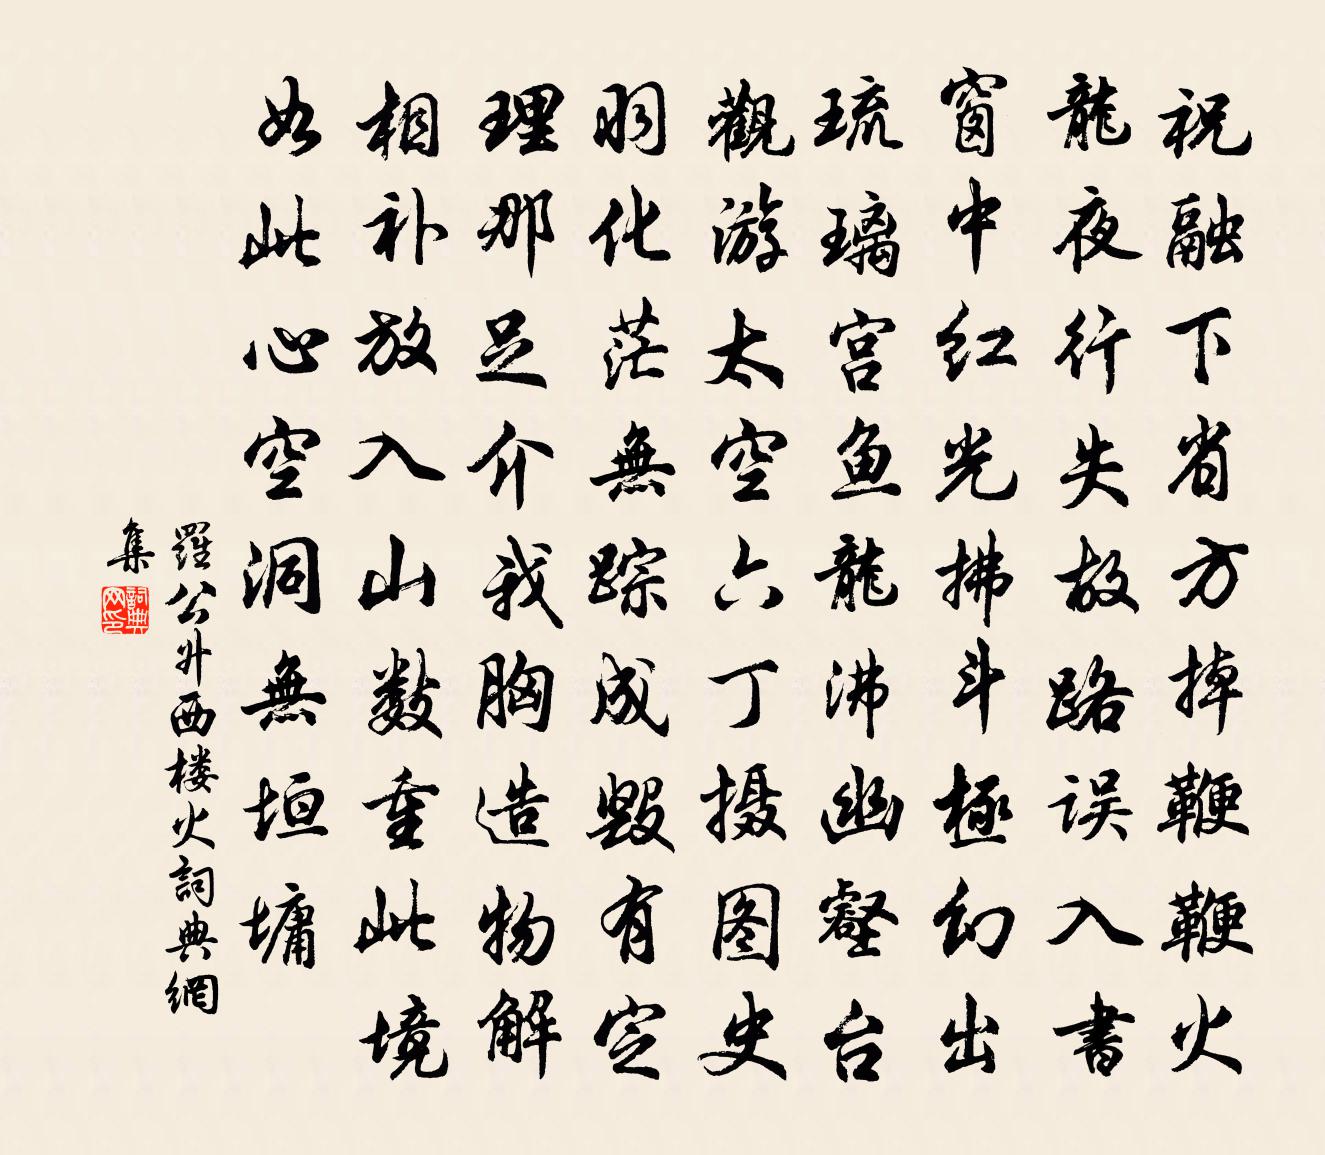 祝融下省方掉鞭鞭火
龍夜行失故路误入書
窗中红光拂斗極幻出
琉璃宫鱼龍沸幽壑台
觀游太空六丁摄图史
羽化茫無踪成毁有定
理那足介我胸造物解
相补放入山数重此境
如此心空洞無垣墉
羅公升西楼火詞典網
集
詞典网印